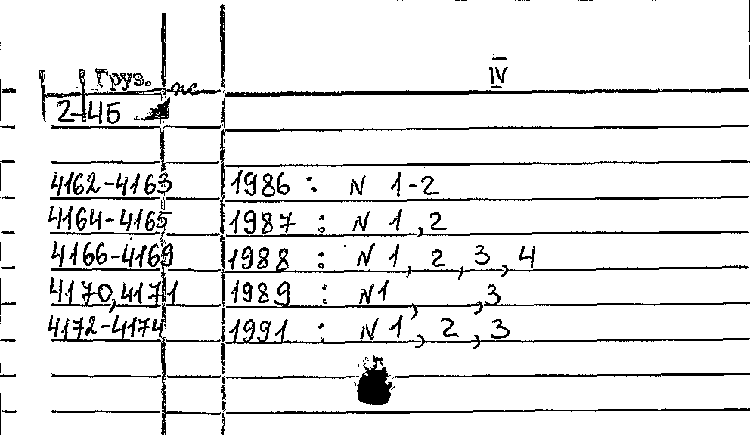 IV
Груз. пс
2-45
4162-4163 1986 : N 1-2
4164-4165 1987 : N 1,2
4166-4169 1988 : N 1, 2, 3, 4
4170,4171 1989 : N1, ,3
4172-4174 1991 : N 1, 2, 3